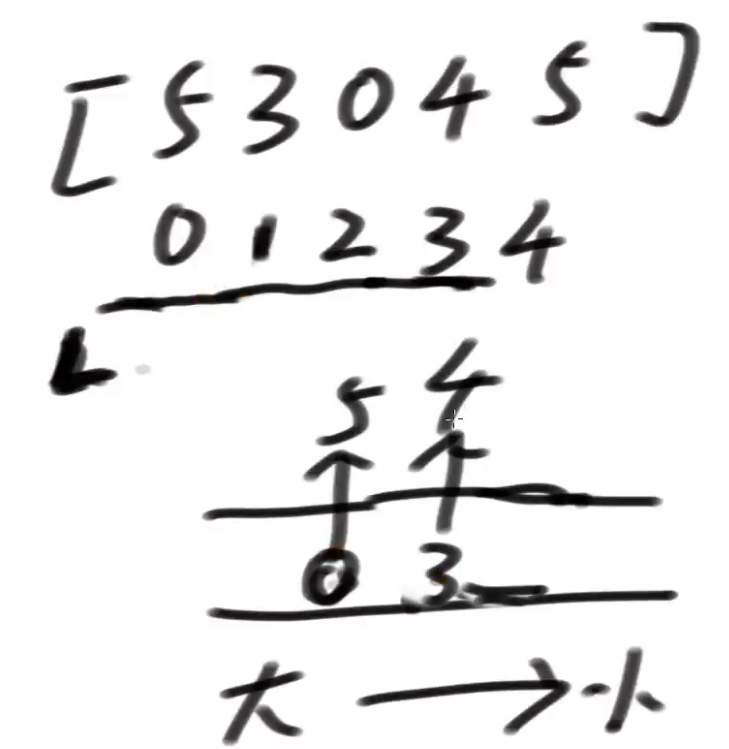 [ 5 3 0 4 5 ]
0 1 2 3 4
L
5 4
↑ ↑
0 3
大 → 小